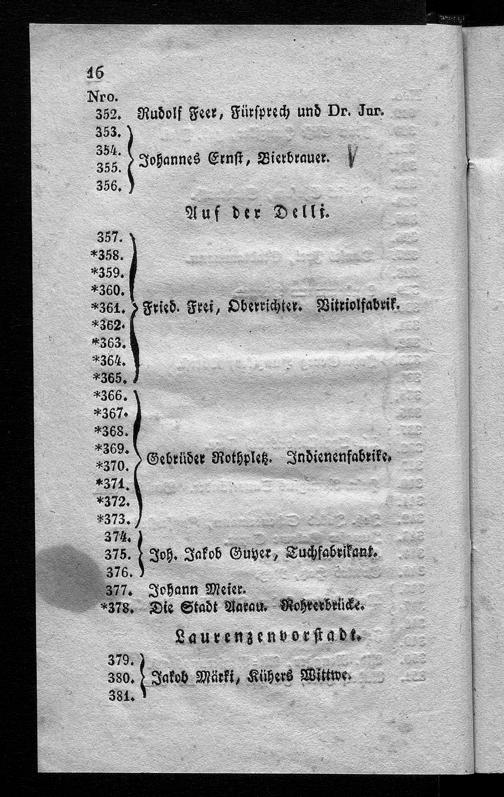 16
Nro.
352. Rudolf Feer, Fürsprech und Dr. Jur.
353.
354.
Johannes Ernst, Bierbrauer. V
355.
356.
Auf der Delli.
357.
*358.
*359.
*360.
*361. Fried. Frei, Oberrichter. Vitriolfabrik.
*362.
*363.
*364.
*365.
*366.
*367.
*368.
*369.
Gebrüder Rothpletz. Indienenfabrike.
*370.
*371.
*372.
*373.
374.
375. Joh. Jakob Guyer, Tuchfabrikant.
376.
377. Johann Meier.
*378. Die Stadt Aarau. Rohrerbrücke.
Laurenzenvorstadt.
379.
380. Jakob Märki, Kühers Wittwe.
381.